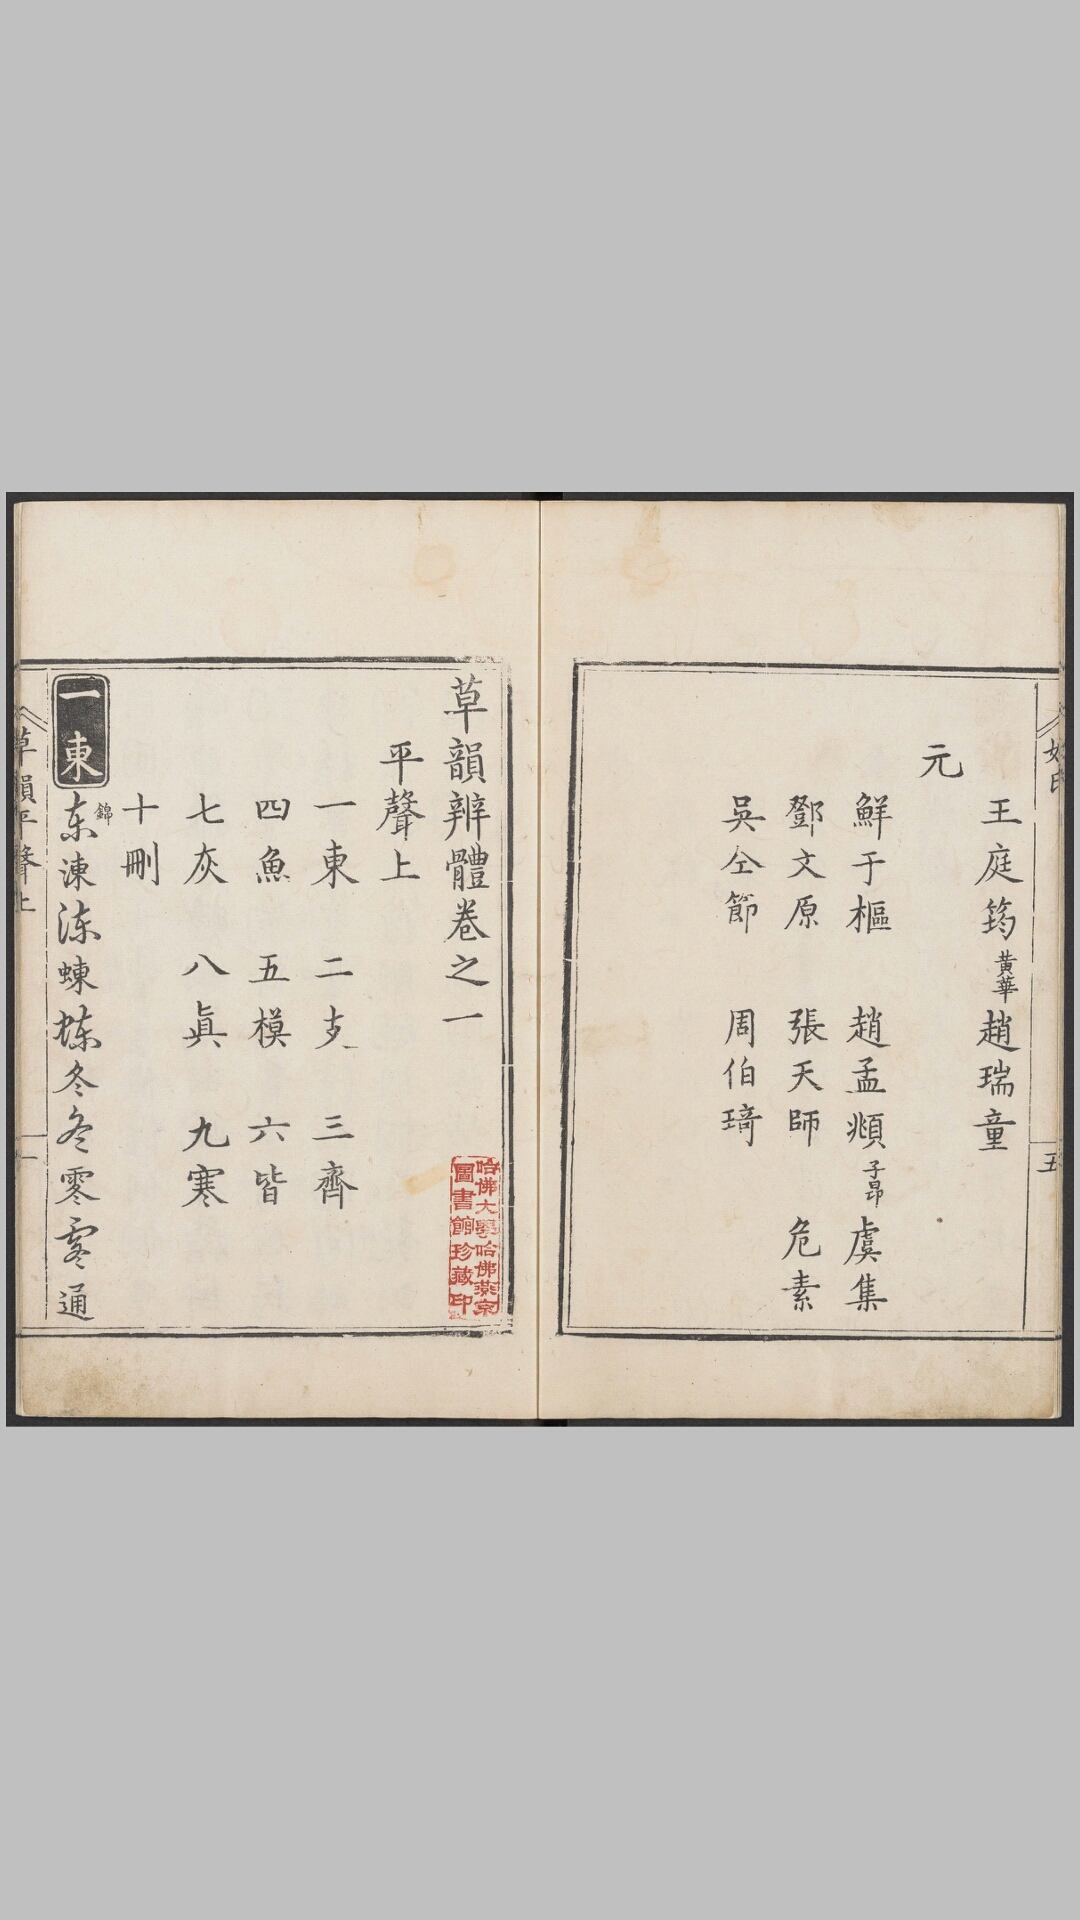 姓氏
五
王庭筠黄華 趙瑞童
元
鮮于樞 趙孟頫子昂 虞集
鄧文原 張天師 危素
吳仝節 周伯琦
草韻辨體卷之一
哈佛大學哈佛燕京
圖書館珍藏印
平聲上
一東 二支 三齊
四魚 五模 六皆
七灰 八眞 九寒
十刪
一東 东錦 涷 涷 蝀 蝀 冬 冬 零 零 通
草韻平聲上
一